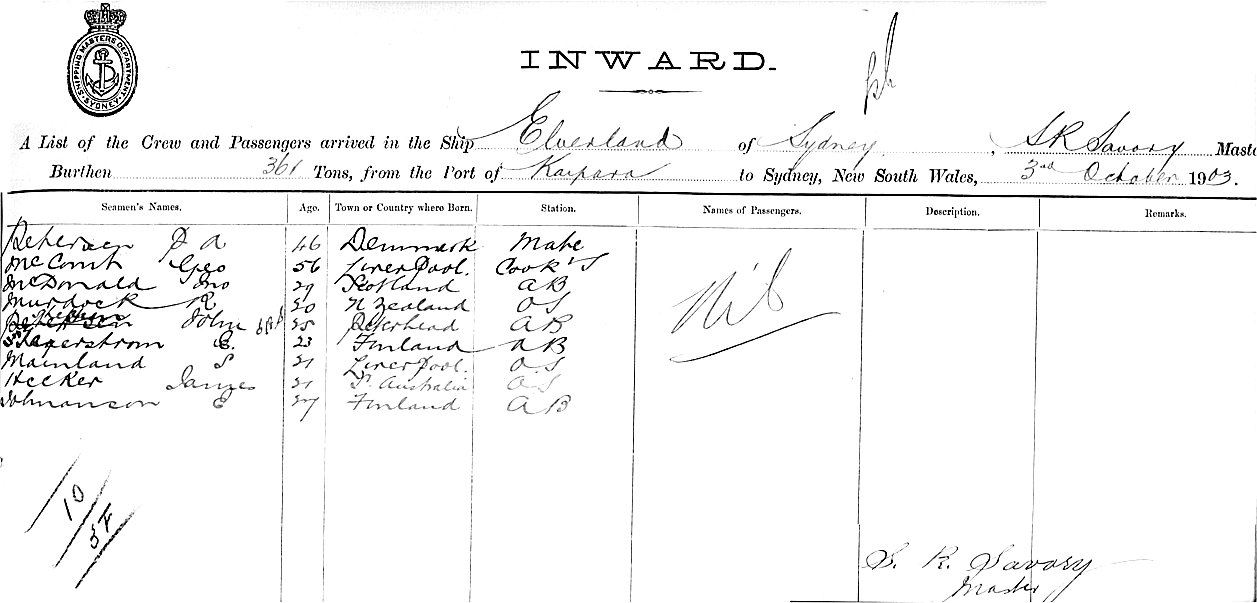 SHIPPING MASTERS DEPARTMENT
SYDNEY
INWARD.
A List of the Crew and Passengers arrived in the Ship Elverland of Sydney, S R Savory Maste
Burthen 361 Tons, from the Port of Kaipara to Sydney, New South Wales, 3rd October 1903.
Seamen's Names. Age. Town or Country where Born. Station. Names of Passengers. Description. Remarks.
Petersen A 46 Denmark Mate
McComb Geo 56 Liverpool. Cook & S
McDonald Jno 29 Scotland AB
Murdock R 20 N Zealand OS
John Peterhead AB
E. 23 Finland AB
Mainland S 21 Liverpool. O.S
Hecker James 21 S. Australia OS
Johnanson E 27 Finland AB
Nil
10
S. R. Savory
Master